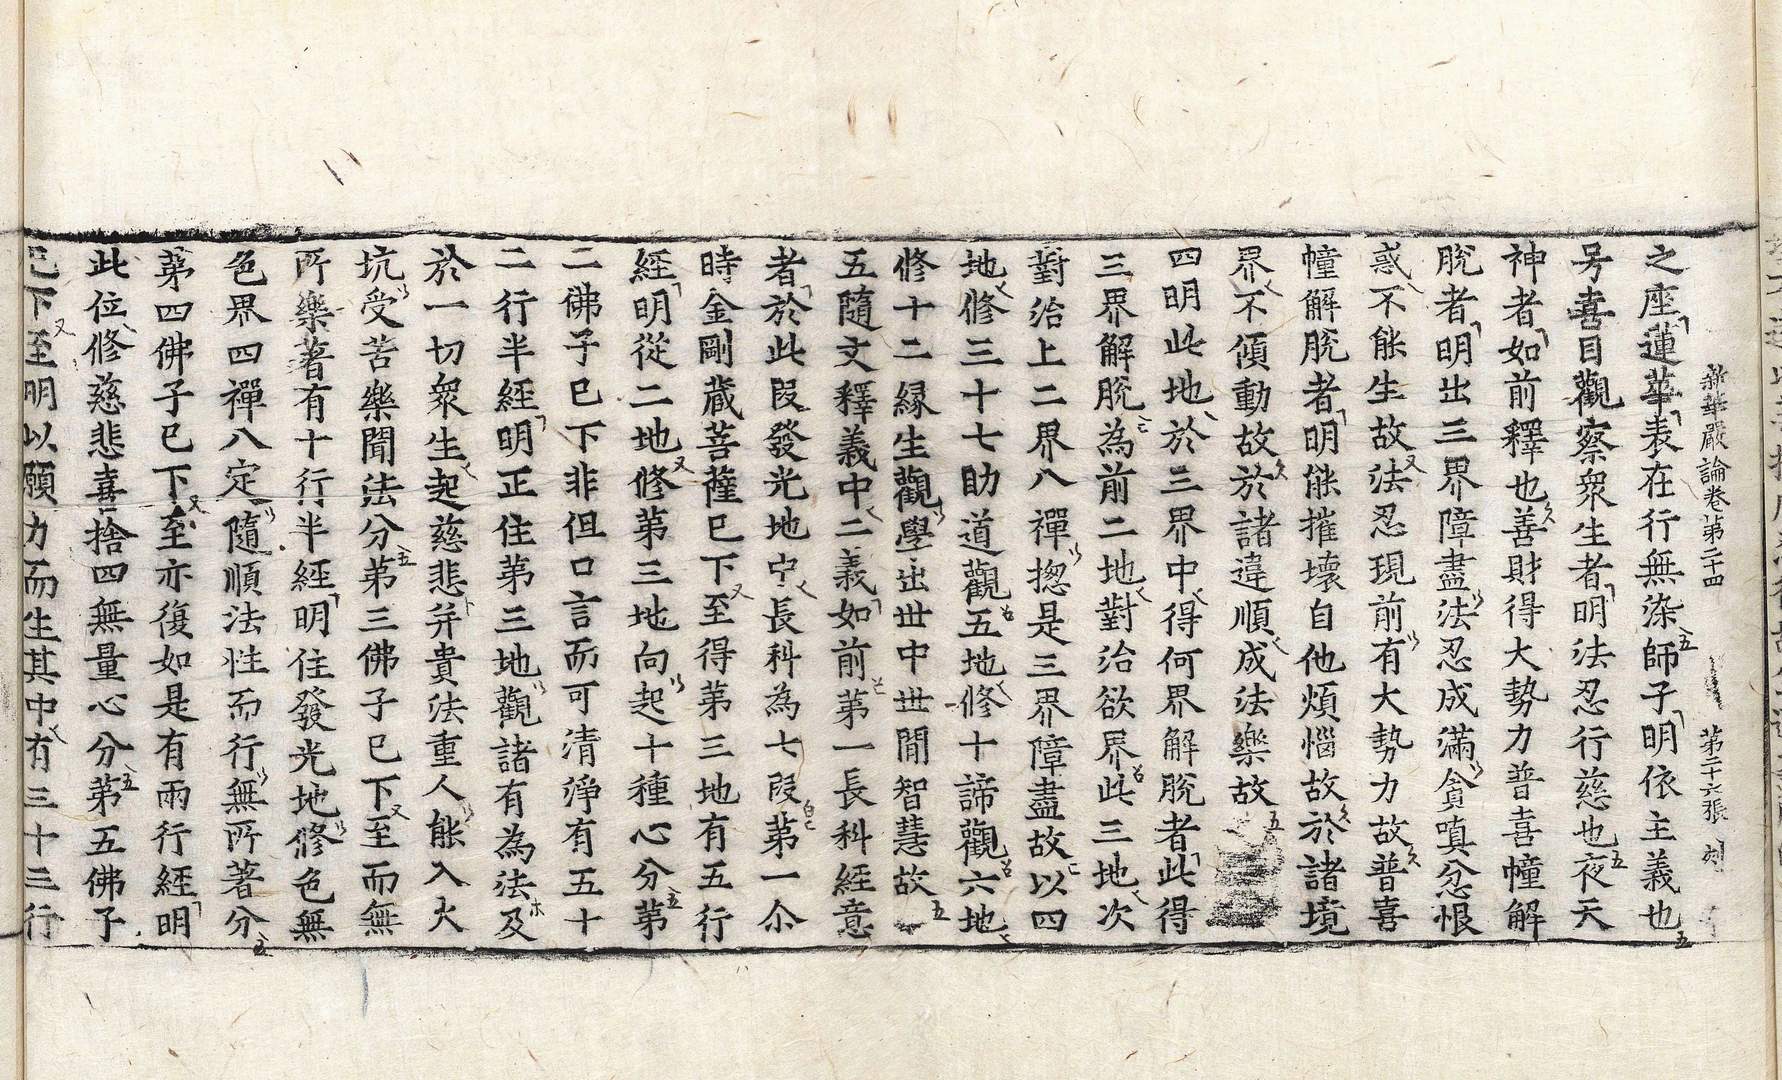 新華嚴論卷第二十四 第二十六張
之座蓮華表在行無染師子明依主義也
号喜目觀察衆生者明法忍行慈也夜天
神者如前釋也善財得大勢力普喜幢解
脫者明出三界障盡法忍成滿貪嗔忿恨
惑不能生故法忍現前有大勢力故普喜
幢解脫者明能摧壞自他煩惱故於諸境
界不傾動故於諸違順成法樂故
四明此地於三界中得何界解脫者此得
三界解脫為前二地對治欲界此三地次
對治上二界八禪惣是三界障盡故以四
地修三十七助道觀五地修十諦觀六地
修十二緣生觀學出世中世間智慧故
五隨文釋義中二義如前第一長科經意
者於此段發光地中長科為七段第一尒
時金剛蔵菩薩已下至得第三地有五行
經明從二地修第三地向起十種心分第
二佛子已下非但口言而可清淨有五十
二行半經明正住第三地觀諸有為法及
於一切衆生起慈悲并貴法重人能入大
坑受苦樂聞法分第三佛子已下至而無
所樂著有十行半經明住發光地修色無
色界四禪八定隨順法性而行無所著分
第四佛子已下至亦復如是有兩行經明
此位修慈悲喜捨四無量心分第五佛子
已下至明以願力而生其中有三十三行